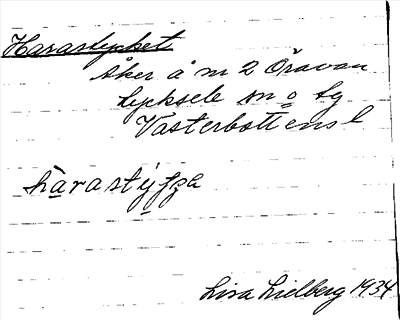 Harastycket
åker å m 2 Öravan
Lycksele sn o tg
Västerbottens l
hàrastýʃʒa
Lisa Lidberg 1934